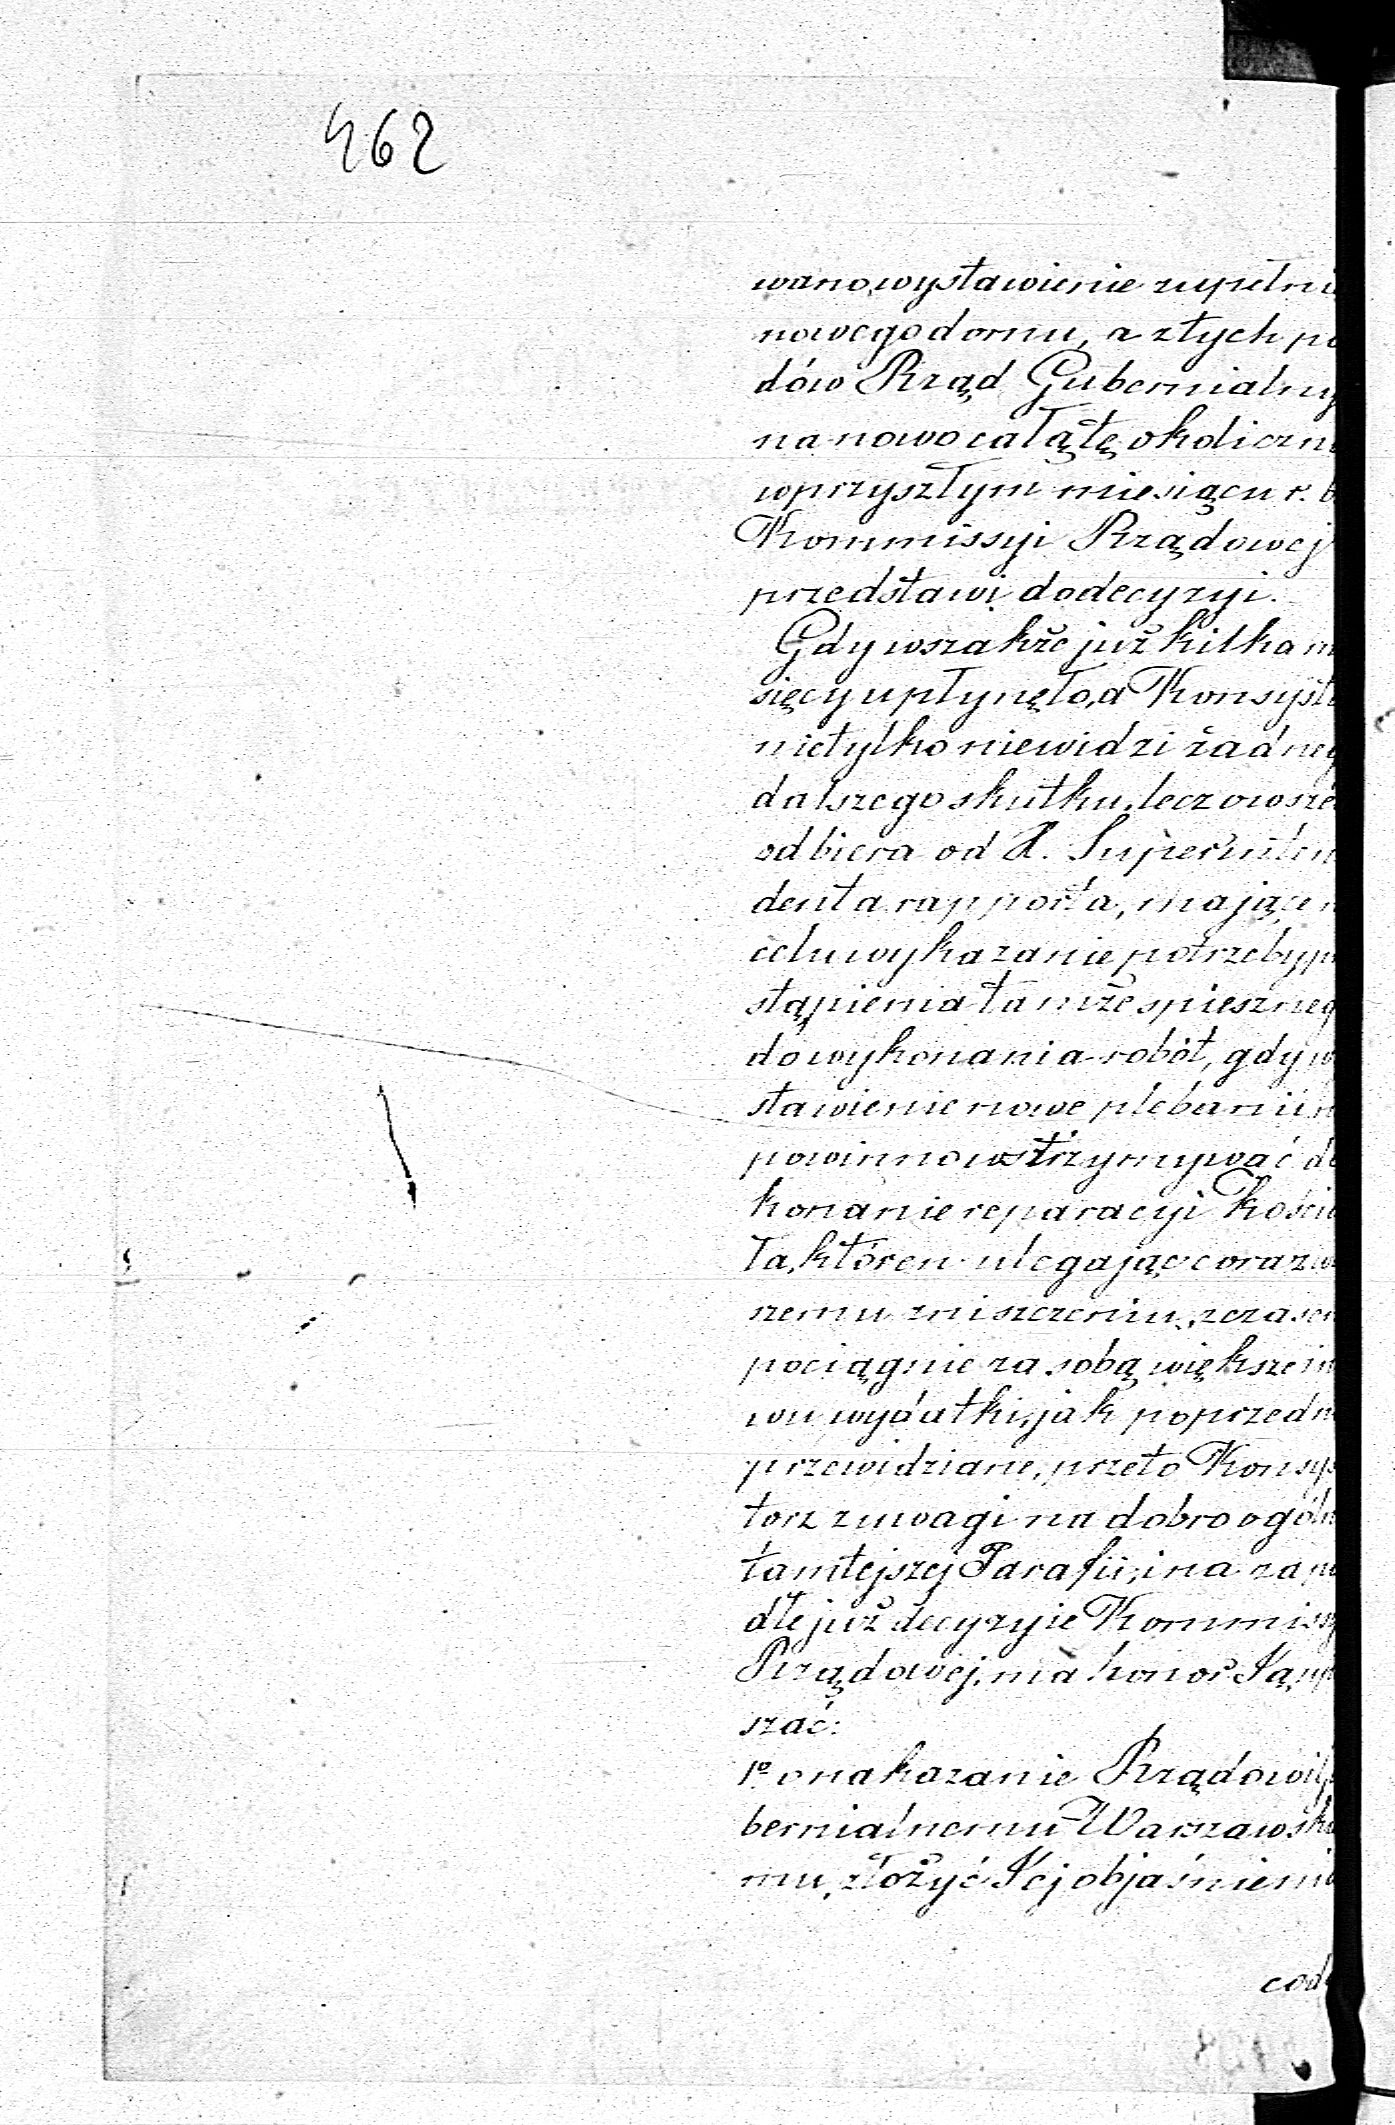 462
wano, wystawienie zupełni
nowego domu, a z tych po
dów Rząd Gubernialny
na nowo całą tę okoliczn
w przyszłym miesiącu r. b
Kommissyi Rządowej
przedstawi do decyzyi.
Gdy wszakże już kilka m
sięcy upłynęło, a Konsyst
nietylko niewidzi żadneg
dalszego skutku, lecz owsze
odbiera od X. Superinten
denta rapporta, mające n
celu wykazanie potrzeby p
stąpienia tamże spieszneg
do wykonania robót, gdy wy
stawienie nowe plebanii n
powinno wstrzymywać do
konanie reparacyi Kościo
ła, któren ulegając coraz w
szemu zniszczeniu, z czasem
pociągnie za sobą większe in
wu wydatki, jak poprzedn
przewidziane, przeto Konsys
torz z uwagi na dobro ogóln
tamtejszej Parafii, i na zapa
dłe już decyzyie Kommissy
Rządowej, ma honor Ją, up
szać:
1º o nakazanie Rządowi G
bernialnemu Warszawski
mu, złożyć Jej objaśnieni
cod